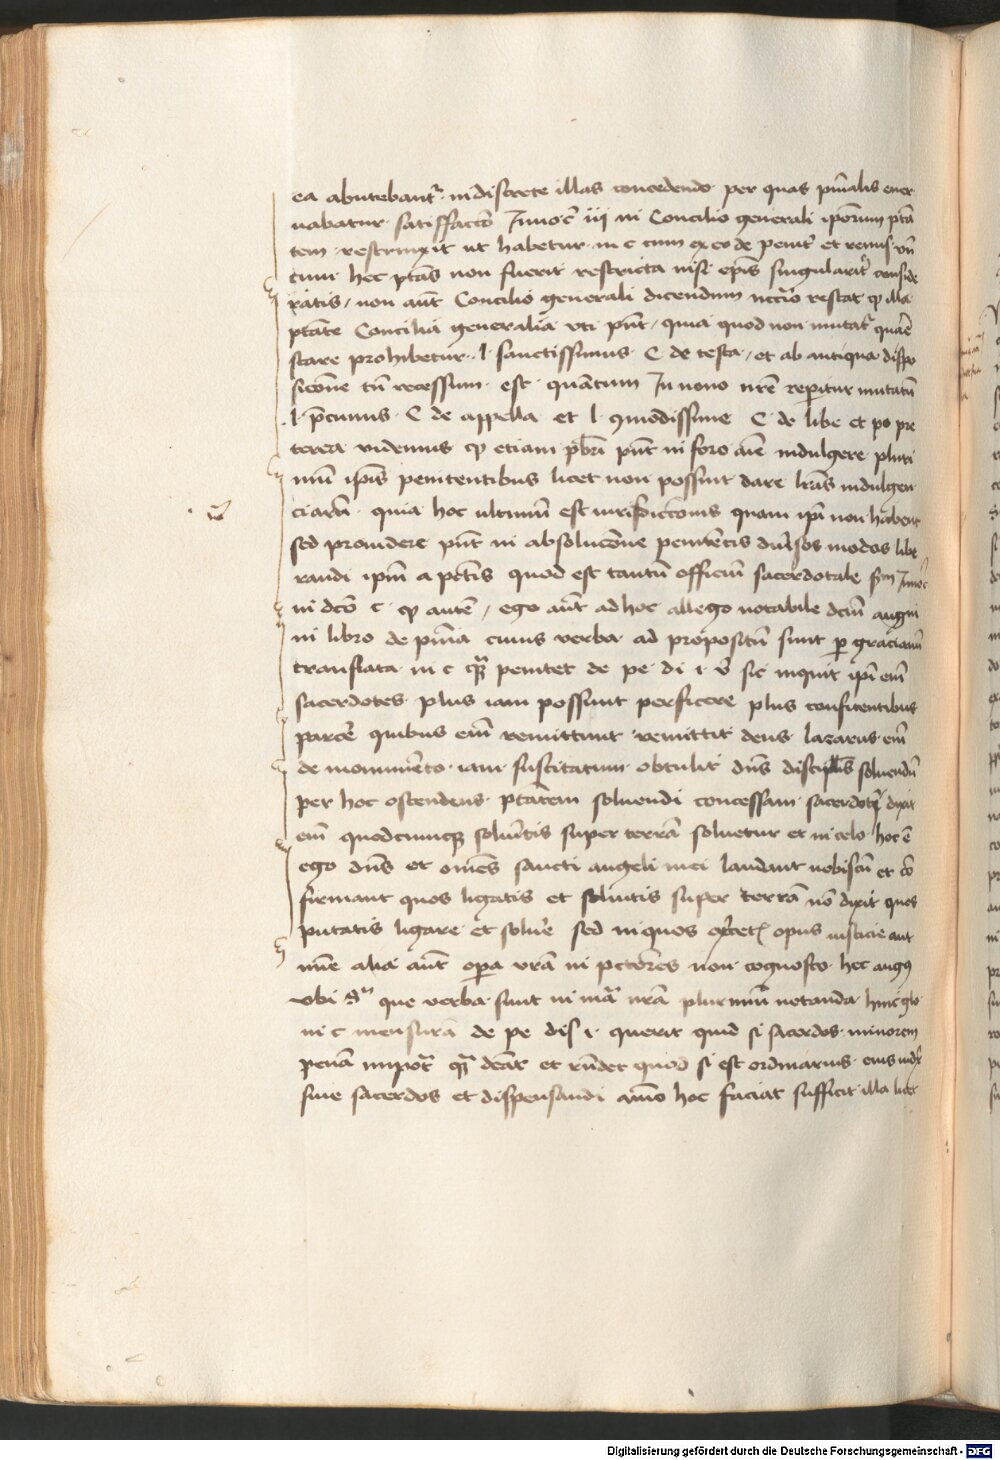 ea abutebant᷑ indiscrete illas concedendo per quas pn̄ialis ener
uabatur satisfacco᷑ Innoc̄ iij in Concilio generali ipōrum ptā
tem restrinxit ut habetur in c cum ex eo de penit᷑ et remis vn̄
cum hec ptās non fuerit restricta nisi epīs singularit᷑ conside
ratis / non aūt Concilio generali dicendum restat ꝙ illa
ptāte Concilia generalia vti pn̄t / quia quod non mutat᷑ quare
stare prohibetur l sanctissimus C de testa / et ab antiqua dispo
sicōne tn̄ recessum est quantum In nouo reperitur mutatū
l C de appella et l ꝯmodissime C de libe et po pre
terea videmus ꝙ etiam pb̄ri pn̄t in foro aīe indulgere pluri
mū ipīs penitentibus licet non possint dare lrās indulgen
ciarū quia hoc ultimū est iurisdictionis quam ipī non habent
sed prouidere pn̄t in absolucōne penitēcis diu᷑sos modos libe
randi ipm̄ a pctīs quod est tantū officiū sacerdotale sm̄ Innoc̄
in dc̄o c ꝙ autē / ego aūt ad hoc allego notabile dc̄m augu
ni libro de pn̄ia cuius verba ad propositū sunt ꝑ gracianū
translata in c penitet de pe di i v̄ sic inquit ipī em̄
sacerdotes plus iam possunt perficere plus confitentibus
parcē quibus em̄ remittunt remittit deus lazarus em̄
de monumēto iam suscitatum obtulit dn̄s discipl̄is soluendū
per hoc ostendens ptātem soluendi concessam sacerdotibꝫ dixit
em̄ quodcunqꝫ solu᷑itis super terrā soluetur et in celo hoc ē
ego dn̄s et om̄es sancti angeli mei laudant vobiscū et cō
firmant quos ligatis et soluitis super terrā nō dixit quos
putatis ligare et solue᷑ sed in quos opus iusticie aut
mīe alia aūt opera vrā in pctōres non cognosco hec augꝰ
vbi sᵃ que verba sunt in mā nrā plurimū notanda hinc glo
in c mensurā de pe dis i querit quid si sacerdos minorem
penā impoīt qꝫ debēt et rn̄det quod si est ordinarius eius
siue sacerdos et dispensandi aīo hoc faciat sufficit illa licet
Digitalisierung gefördert durch die Deutsche Forschungsgemeinschaft - DFG